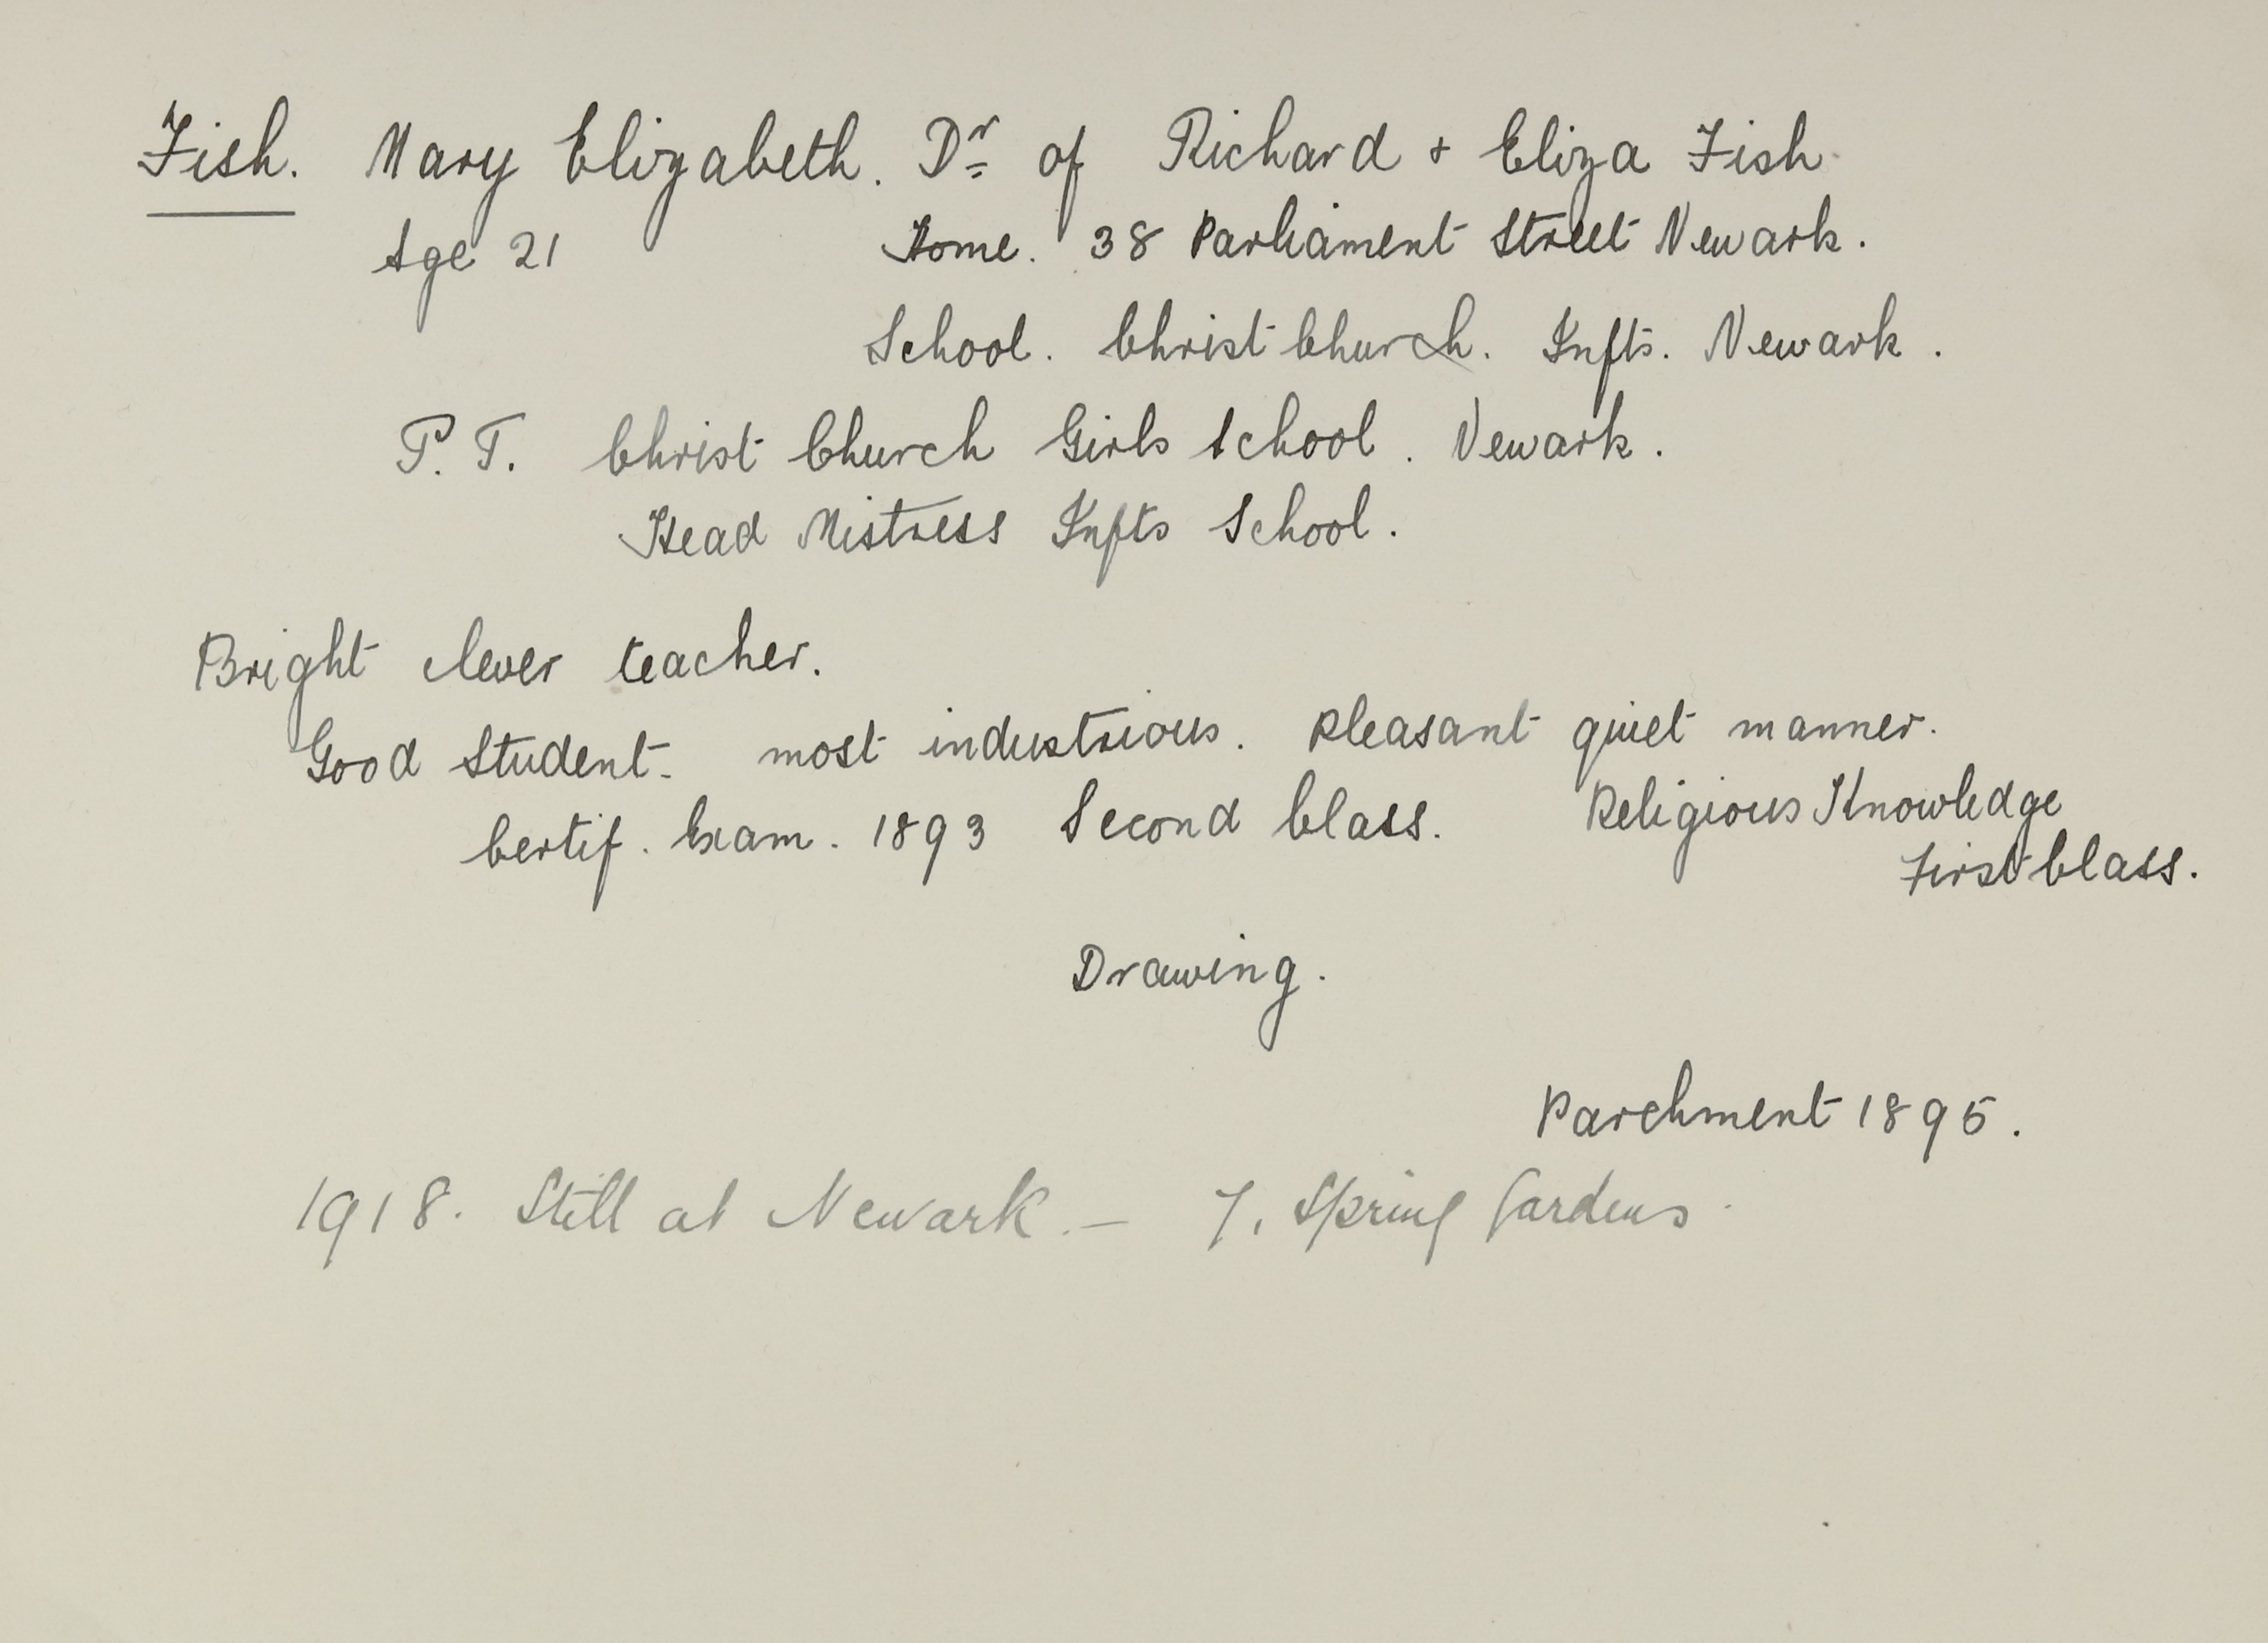 Fish. Mary Elizabeth. Dr of Richard + Eliza Fish
Age 21 Home. 38 Parliament Street Newark.
School. Christ Church. Infts. Newark.
P. T. Christ Church Girls School. Newark.
Head Mistress Infts School.
Bright clever teacher.
Good Student- most industrious. Pleasant quiet manner.
Certif. Exam. 1893 Second Class. Religious Knowledge
First Class.
Drawing.
Parchment 1895.
1918. Still at Newark. — 7, Spring Gardens.